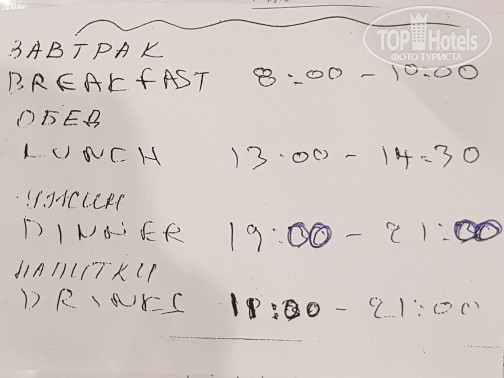 TOP Hotels
ФОТО ТУРИСТА
ЗАВТРАК
BREAKFAST 8:00 - 10:00
ОБЕД
LUNCH 13.00 - 14:30
УЖИН
DINNER 19:00 - 21:00
НАПИТКИ
DRINKS 21:00